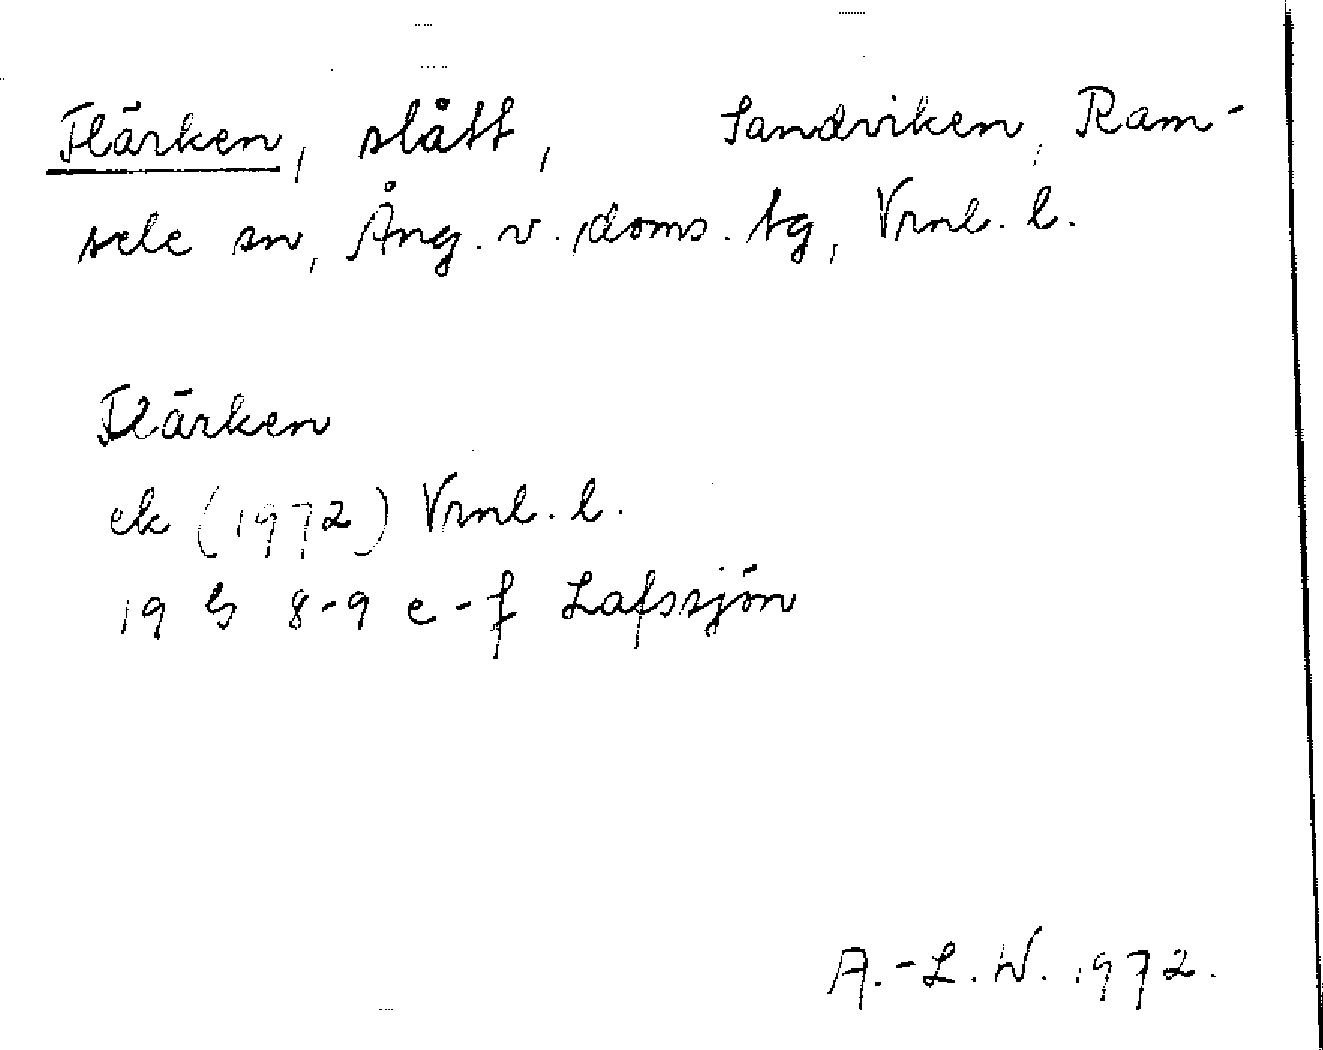 Flärken, slått, Sandviken, Ram-
sele sn, Ång. v. doms. tg, Vrnl. l.
Flärken
ek (1972) Vrnl. l.
19 G 8-9 e-f Lafssjön
A.-L. W. 1972.